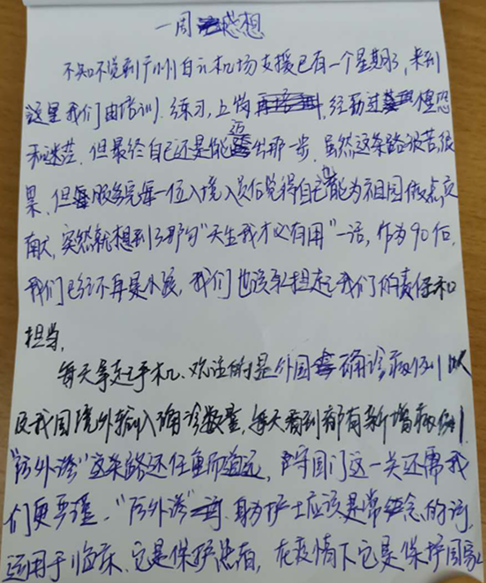 一周感想
不知不觉到广州白云机场支援已有一个星期了,来到
这里我们由培训、练习,上岗,经历过惶恐
和迷茫,但最终自己还是能迈出那一步,虽然这条路很苦很
累,但每服务完每一位入境人员后觉得自己能为祖国做点贡
献,突然就想到了那句“天生我才必有用”一话,作为90后,
我们已经不再是小孩,我们也该承担起我们的责任和
担当。
每天拿起手机,关注的是外国确诊病例以
及我国境外输入确诊数量,每天看到都有新增病例,
“防外渗”这条路还任重而道远,严守国门这一关还需我
们更严谨,“防外渗”身为护士应该是常念的词,
运用于临床,它是保护患者,在疫情下它是保护国家